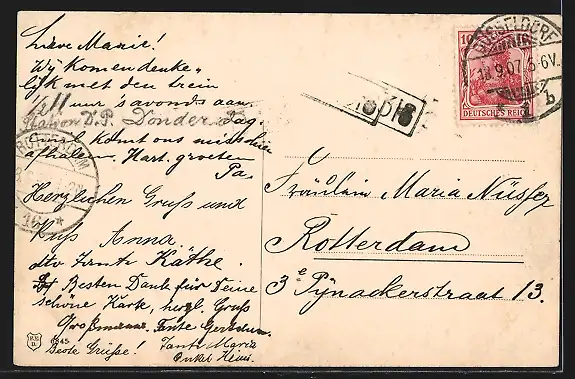 Lieve Marie!
Wij komen denke-
lijk met den trein
½ 11 uur 's avonds aan
Station D.P. Donderdag.
komt ons misschien
afhalen. Hart. groeten
Pa.
Herzlichen Gruss und
Kuss Anna.
dto Tante Käthe.
Besten Dank für Deine
schöne Karte, herzl. Gruss
Grossmama. Tante
Beste Grüsse! Tante Maria
Onkel
Fräulein Maria
Rotterdam
3e Pijnackerstraat 13.
DÜSSELDORF
9.07. 5-6V.
b
10
DEUTSCHES REICH
ROTTERDAM